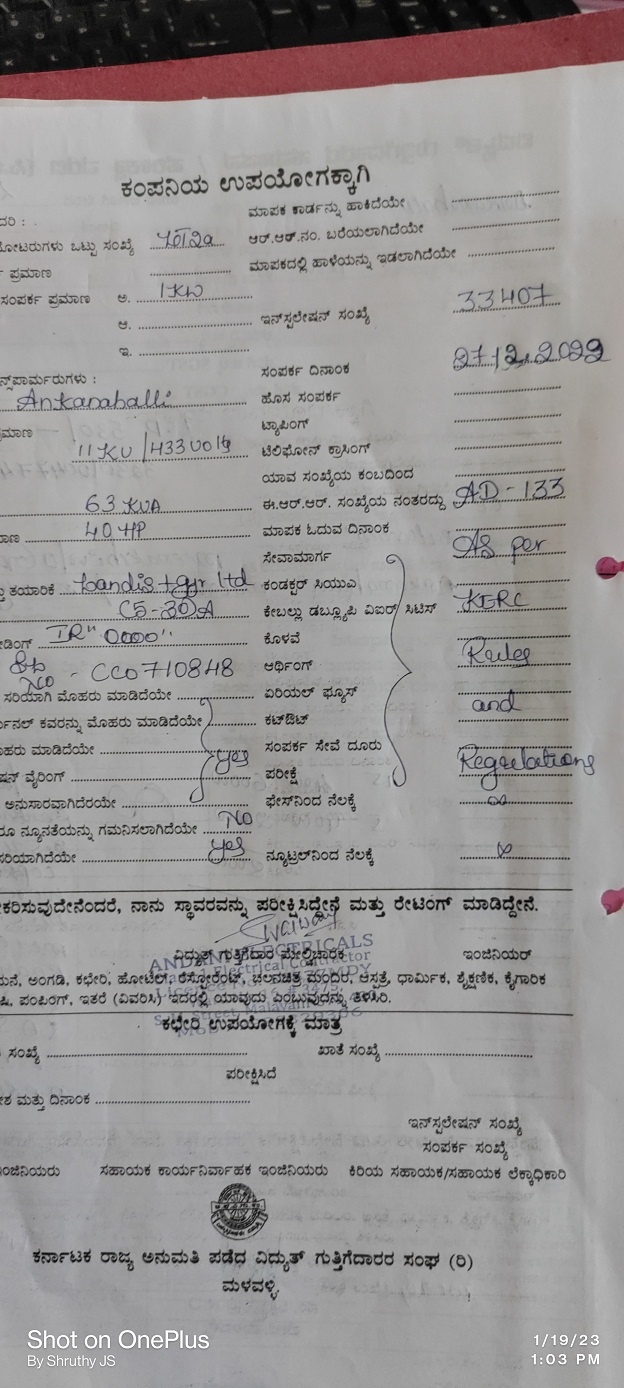 ಕಂಪನಿಯ ಉಪಯೋಗಕ್ಕಾಗಿ
ಮಾಪಕ ಕಾರ್ಡನ್ನು ಹಾಕಿದೆಯೇ
ಒಟ್ಟು ಸಂಖ್ಯೆ ಆರ್.ಆರ್.ನಂ. ಬರೆಯಲಾಗಿದೆಯೇ
ಪ್ರಮಾಣ ಮಾಪಕದಲ್ಲಿ ಹಾಳೆಯನ್ನು ಇಡಲಾಗಿದೆಯೇ
ಸಂಪರ್ಕ ಪ್ರಮಾಣ ಅ. 1KW
ಆ. ಇನ್ಸ್ಟಲೇಷನ್ ಸಂಖ್ಯೆ 33407
ಇ.
ಸಂಪರ್ಕ ದಿನಾಂಕ 27.12.2022
Ankanahalli ಹೊಸ ಸಂಪರ್ಕ
ಟ್ಯಾಪಿಂಗ್
11KV/433Volts ಟೆಲಿಫೋನ್ ಕ್ರಾಸಿಂಗ್
ಯಾವ ಸಂಖ್ಯೆಯ ಕಂಬದಿಂದ
63 KVA ಈ.ಆರ್.ಆರ್. ಸಂಖ್ಯೆಯ ನಂತರದ್ದು AD-133
40 HP ಮಾಪಕ ಓದುವ ದಿನಾಂಕ
ಸೇವಾಮಾರ್ಗ As per
ತಯಾರಿಕೆ Landis+gyr ltd ಕಂಡಕ್ಟರ್ ಸಿಯುಎ
C5-30)A ಕೇಬಲ್ಲು ಡಬ್ಲ್ಯೂಪಿ ವಿಐರ್ ಸಿಟಿಸ್ KERC
IR" 0000" ಕೊಳವೆ
NO - CC0710848 ಅರ್ಥಿಂಗ್ Rules
ಸರಿಯಾಗಿ ಮೊಹರು ಮಾಡಿದೆಯೇ ಏರಿಯಲ್ ಫ್ಯೂಸ್
ಕವರನ್ನು ಮೊಹರು ಮಾಡಿದೆಯೇ ಕಟ್ಔಟ್ and
ಮಾಡಿದೆಯೇ ಸಂಪರ್ಕ ಸೇವೆ ದೂರು
ವೈರಿಂಗ್ yes ಪರೀಕ್ಷೆ Regulations
ಅನುಸಾರವಾಗಿದೆಯೇ ಫೇಸ್‌ನಿಂದ ನೆಲಕ್ಕೆ ∞
ನ್ಯೂನತೆಯನ್ನು ಗಮನಿಸಲಾಗಿದೆಯೇ NO
yes ನ್ಯೂಟ್ರಲ್‌ನಿಂದ ನೆಲಕ್ಕೆ ∞
ನಾನು ಸ್ಥಾವರವನ್ನು ಪರೀಕ್ಷಿಸಿದ್ದೇನೆ ಮತ್ತು ರೇಟಿಂಗ್ ಮಾಡಿದ್ದೇನೆ.
ವಿದ್ಯುತ್ ಗುತ್ತಿಗೆದಾರ ಮೇಲ್ವಿಚಾರಕ ಇಂಜಿನಿಯರ್
ಅಂಗಡಿ, ಕಛೇರಿ, ಹೋಟೆಲ್, ರೆಸ್ಟೋರೆಂಟ್, ಚಲನಚಿತ್ರ ಮಂದಿರ, ಆಸ್ಪತ್ರೆ, ಧಾರ್ಮಿಕ, ಶೈಕ್ಷಣಿಕ, ಕೈಗಾರಿಕ
ಪಂಪಿಂಗ್, ಇತರೆ (ವಿವರಿಸಿ) ಇದರಲ್ಲಿ ಯಾವುದು ಎಂಬುವುದನ್ನು ತಿಳಿಸಿರಿ.
ಕಛೇರಿ ಉಪಯೋಗಕ್ಕೆ ಮಾತ್ರ
ಸಂಖ್ಯೆ ಖಾತೆ ಸಂಖ್ಯೆ
ಪರೀಕ್ಷಿಸಿದೆ
ಮತ್ತು ದಿನಾಂಕ
ಇನ್ಸ್ಟಲೇಷನ್ ಸಂಖ್ಯೆ
ಸಂಪರ್ಕ ಸಂಖ್ಯೆ
ಸಹಾಯಕ ಕಾರ್ಯನಿರ್ವಾಹಕ ಇಂಜಿನಿಯರು ಕಿರಿಯ ಸಹಾಯಕ/ಸಹಾಯಕ ಲೆಕ್ಕಾಧಿಕಾರಿ
ಕರ್ನಾಟಕ ರಾಜ್ಯ ಅನುಮತಿ ಪಡೆದ ವಿದ್ಯುತ್ ಗುತ್ತಿಗೆದಾರರ ಸಂಘ (ರಿ)
ಮಳವಳ್ಳಿ.
Shot on OnePlus 1/19/23
By Shruthy JS 1:03 PM